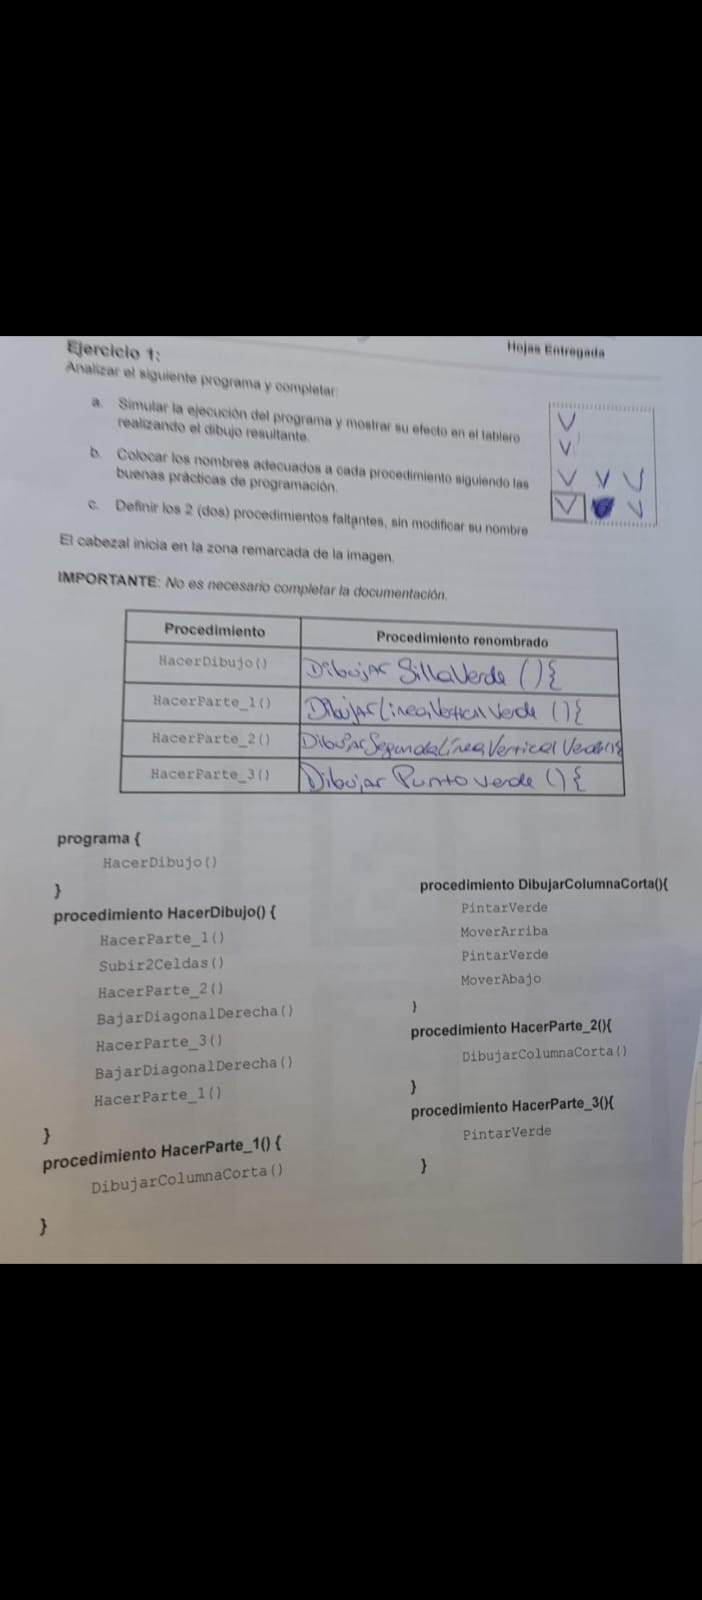 Hojas Entregada
Ejercicio 1:
Analizar el siguiente programa y completar:
a. Simular la ejecución del programa y mostrar su efecto en el tablero
realizando el dibujo resultante.
b. Colocar los nombres adecuados a cada procedimiento siguiendo las
buenas prácticas de programación.
c. Definir los 2 (dos) procedimientos faltantes, sin modificar su nombre
El cabezal inicia en la zona remarcada de la imagen.
IMPORTANTE: No es necesario completar la documentación.
V
V
V V V
V V
Procedimiento Procedimiento renombrado
HacerDibujo() Dibujar SillaVerde (){
HacerParte_1() DibujarLineaVertical Verde (){
HacerParte_2() DibujarSegundaLíneaVertical Verde(){
HacerParte_3() Dibujar Punto verde (){
programa {
HacerDibujo()
}
procedimiento HacerDibujo() {
HacerParte_1()
Subir2Celdas()
HacerParte_2()
BajarDiagonalDerecha()
HacerParte_3()
BajarDiagonalDerecha()
HacerParte_1()
}
procedimiento HacerParte_1() {
DibujarColumnaCorta()
}
procedimiento DibujarColumnaCorta(){
PintarVerde
MoverArriba
PintarVerde
MoverAbajo
}
procedimiento HacerParte_2(){
DibujarColumnaCorta()
}
procedimiento HacerParte_3(){
PintarVerde
}